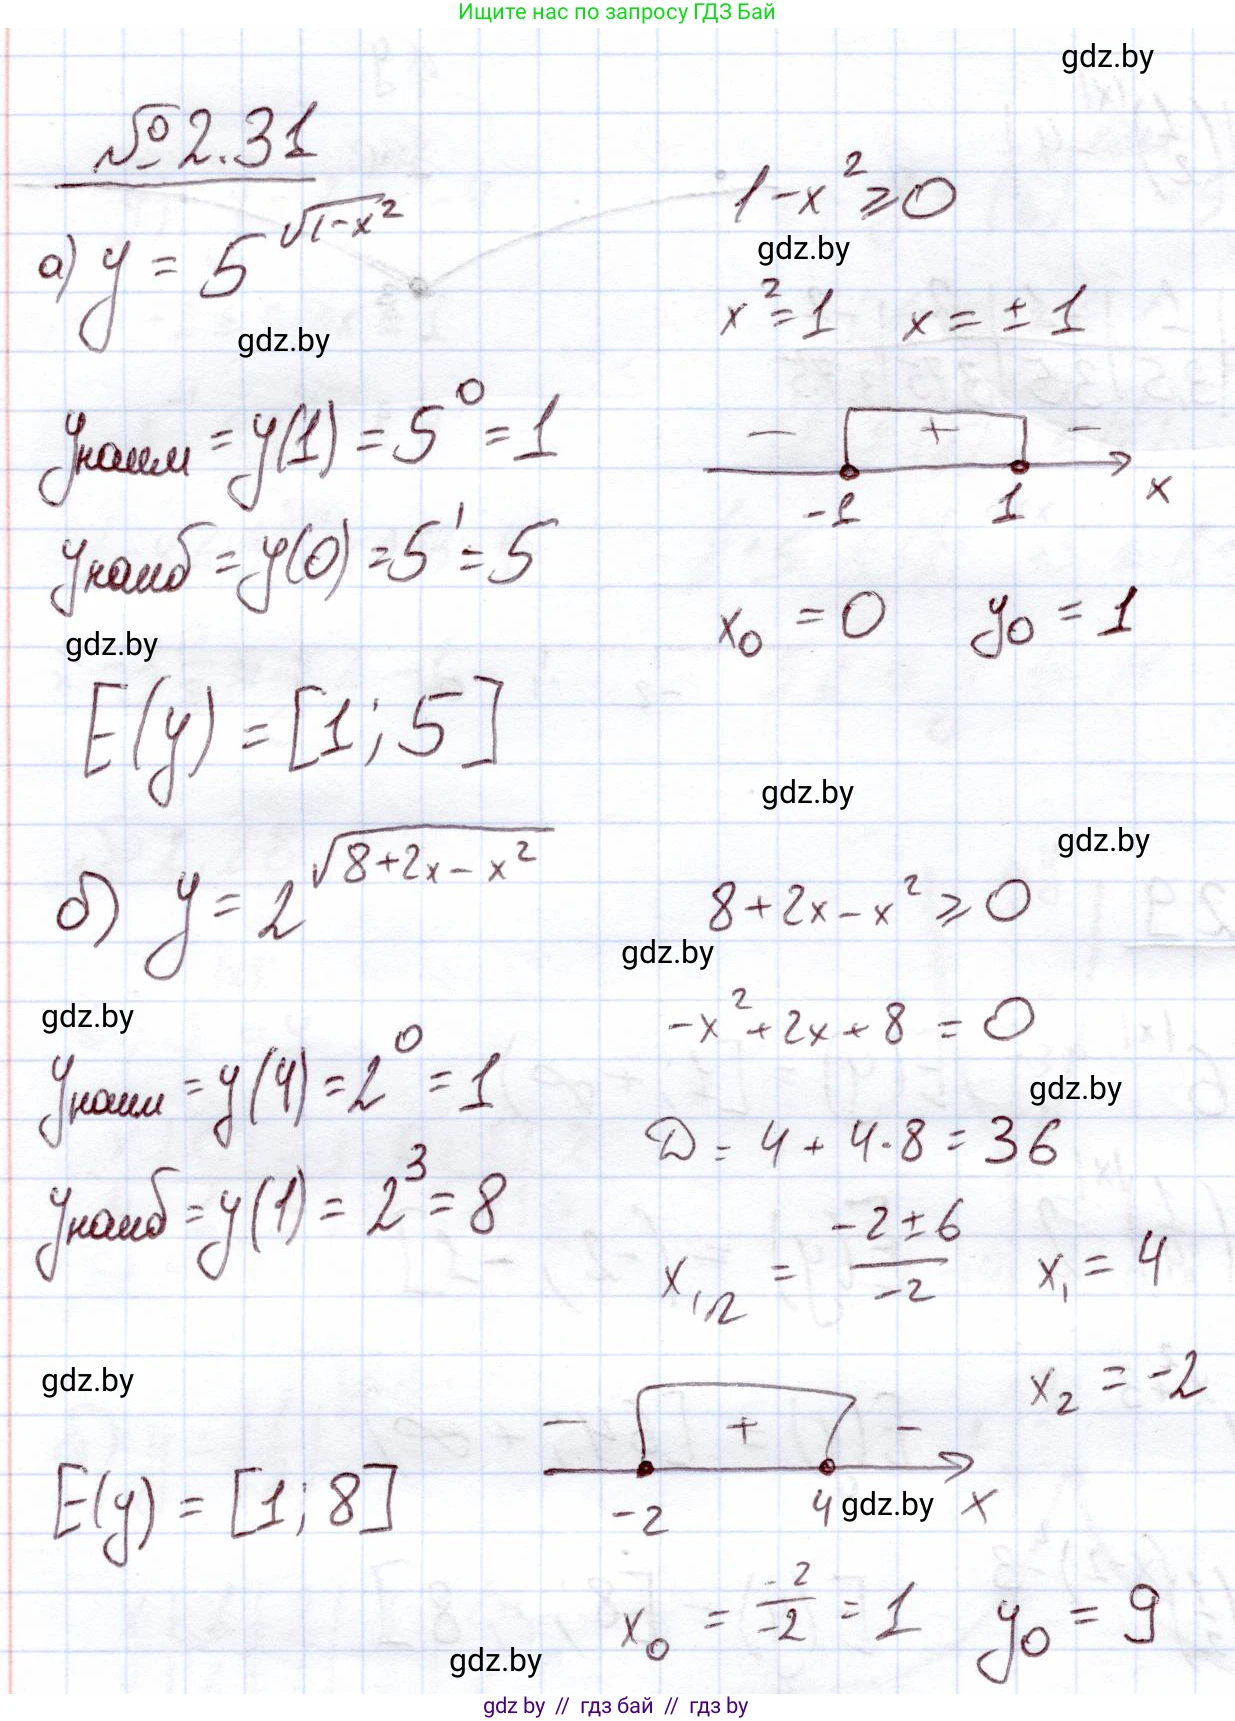 Ищите нас по запросу ГДЗ Бай
gdz.by
№ 2.31
а) y = 5^{√(1-x²)}
1-x² ⩾ 0
gdz.by
x² = 1   x = ± 1
gdz.by
yнаим = y(1) = 5⁰ = 1
— + —
-1 1 x
yнаиб = y(0) = 5¹ = 5
x₀ = 0   y₀ = 1
gdz.by
E(y) = [1; 5]
gdz.by
gdz.by
б) y = 2^{√(8+2x-x²)}
8+2x-x² ⩾ 0
gdz.by
gdz.by
-x²+2x+8 = 0
yнаим = y(4) = 2⁰ = 1
gdz.by
D = 4 + 4·8 = 36
yнаиб = y(1) = 2³ = 8
x₁,₂ = (-2±6)/(-2)   x₁ = 4
x₂ = -2
gdz.by
— + —
E(y) = [1; 8]
-2 4 x
gdz.by
x₀ = (-2)/(-2) = 1   y₀ = 9
gdz.by
gdz by // гдз бай // гдз by